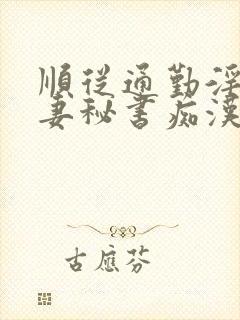 順從通勤淫
妻秘書痴漢
古應芬